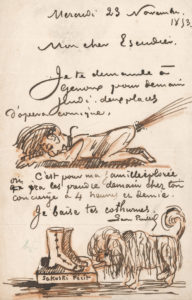 Mercredi 23 Novembre
1853
Mon cher Escudier
Je te demande à
genoux pour demain
jeudi, deux places
d'opera comique,
C'est pour ma famille
on ira les prendre demain chez ton
concierge à 4 heures et demie.
Je baise tes cothurnes.
Sakoski fecit